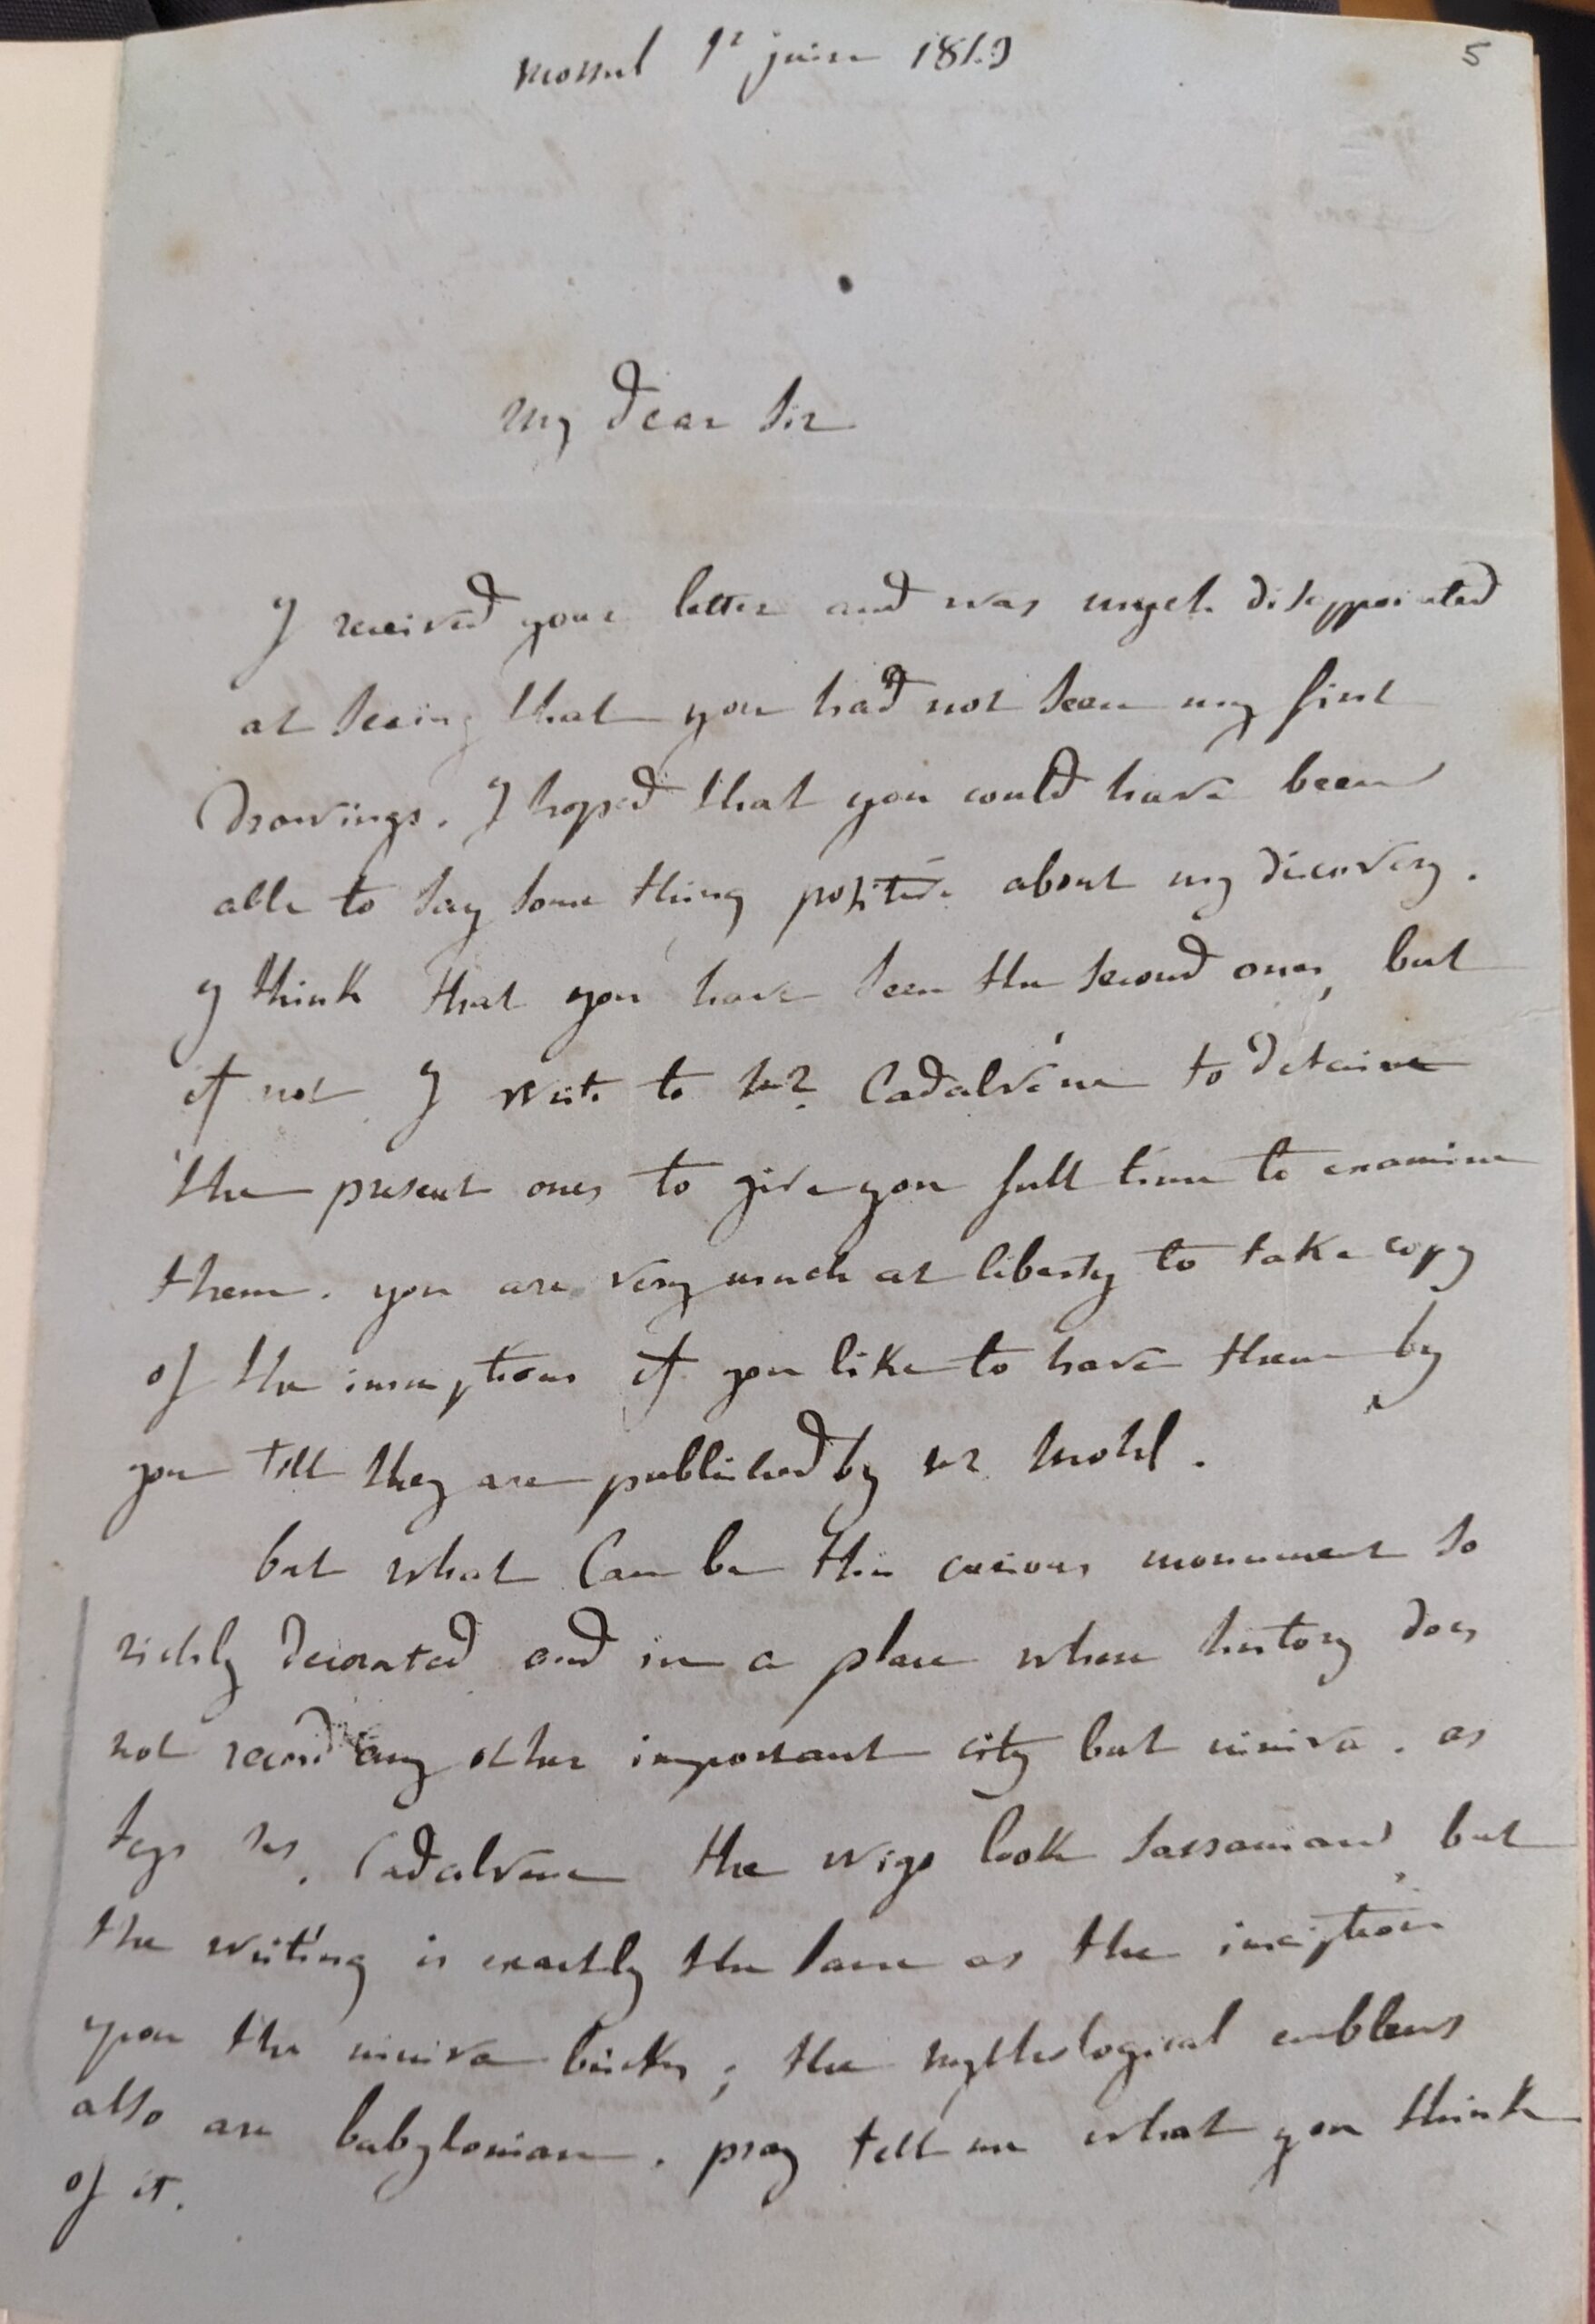 mossul 1r juin 1843
5
My dear Sir
I received your letter and was mych disappointed
at seeing that you had not seen my first
drawings. I hoped that you could have been
able to say some thing positive about my discovery.
I think that you have seen the second ones, but
if not I write to Mr. Cadalvène to detaine
the present ones to give you full time to examine
them. you are very much at liberty to take copy
of the inscriptions if you like to have them by
you till they are published by Mr Mohl.
but what can be this curious monument so
richly decorated and in a place where history does
not record any other important city but niniva. as
says Mr. Cadalvene the wigs look sassanian, but
the writing is exactly the same as the insciption
upon the niniva bricks; the mythological emblems
also are babylonian. pray tell me what you think
of it.